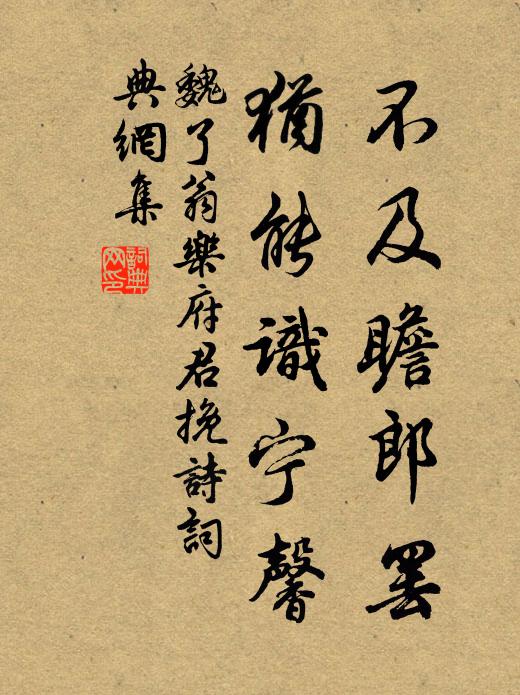 不及瞻郎罢
猶能識宁馨
魏了翁樂府君挽詩詞
典網集
詞典网印